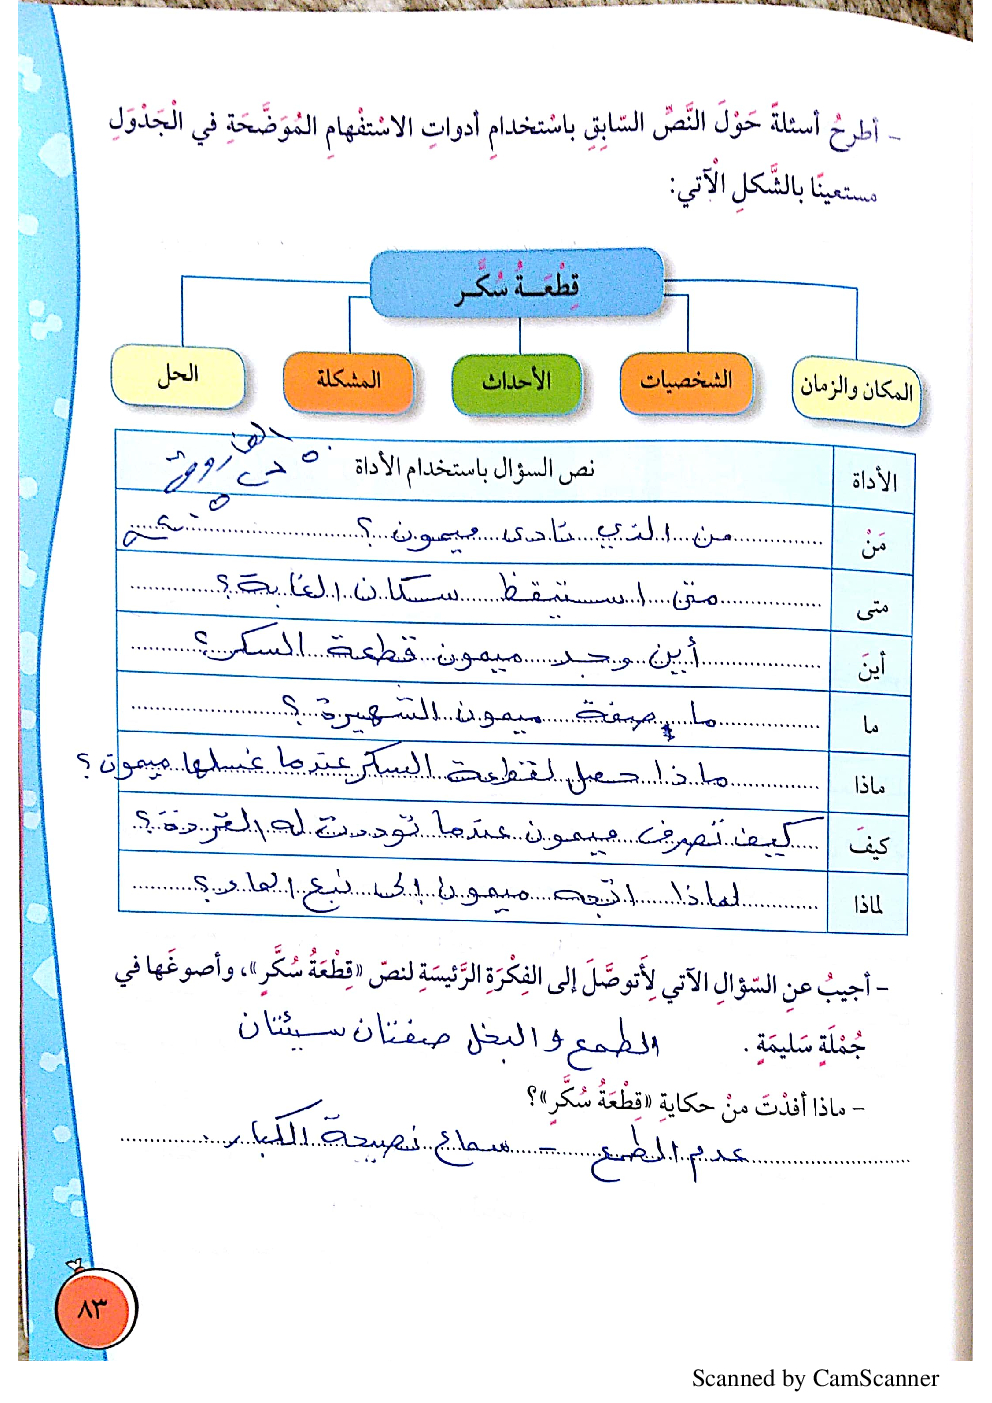 - أطرحُ أسئلةً حَوْلَ النَّصِّ السّابِقِ باسْتخدامِ أدواتِ الاسْتفْهامِ المُوَضَّحَةِ في الْجَدْوَلِ
مستعينًا بالشَّكلِ الْآتي:
قِطْعَةُ سُكَّر
المكان والزمان
الشخصيات
الأحداث
المشكلة
الحل
الأداة
نص السؤال باستخدام الأداة
مَنْ
من الذي نادى ميمون ؟
متى
متى استيقظ سكان الغابة ؟
أينَ
أين وجد ميمون قطعة السكر ؟
ما
ما صفة ميمون الشهيرة ؟
ماذا
ماذا حصل لقطعة السكر عندما غسلها ميمون ؟
كيفَ
كيف تصرف ميمون عندما توددت له القردة ؟
لماذا
لماذا اتجه ميمون إلى نبع الماء ؟
- أجيبُ عنِ السّؤالِ الآتي لِأَتوصَّلَ إلى الفِكْرَةِ الرَّئيسَةِ لنصّ «قِطْعَةُ سُكَّرٍ»، وأصوغَها في
جُمْلَةٍ سَليمَةٍ .
الطمع و البخل صفتان سيئتان
- ماذا أفدْتَ منْ حكايةِ «قِطْعَةُ سُكَّرٍ»؟
عدم الطمع - سماع نصيحة الكبار .
٨٣
Scanned by CamScanner